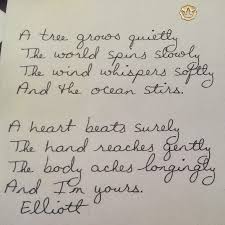 A tree grows quietly
The world spins slowly
The wind whispers softly
And the ocean stirs.
A heart beats surely
The hand reaches gently
The body aches longingly
And I'm yours.
Elliott